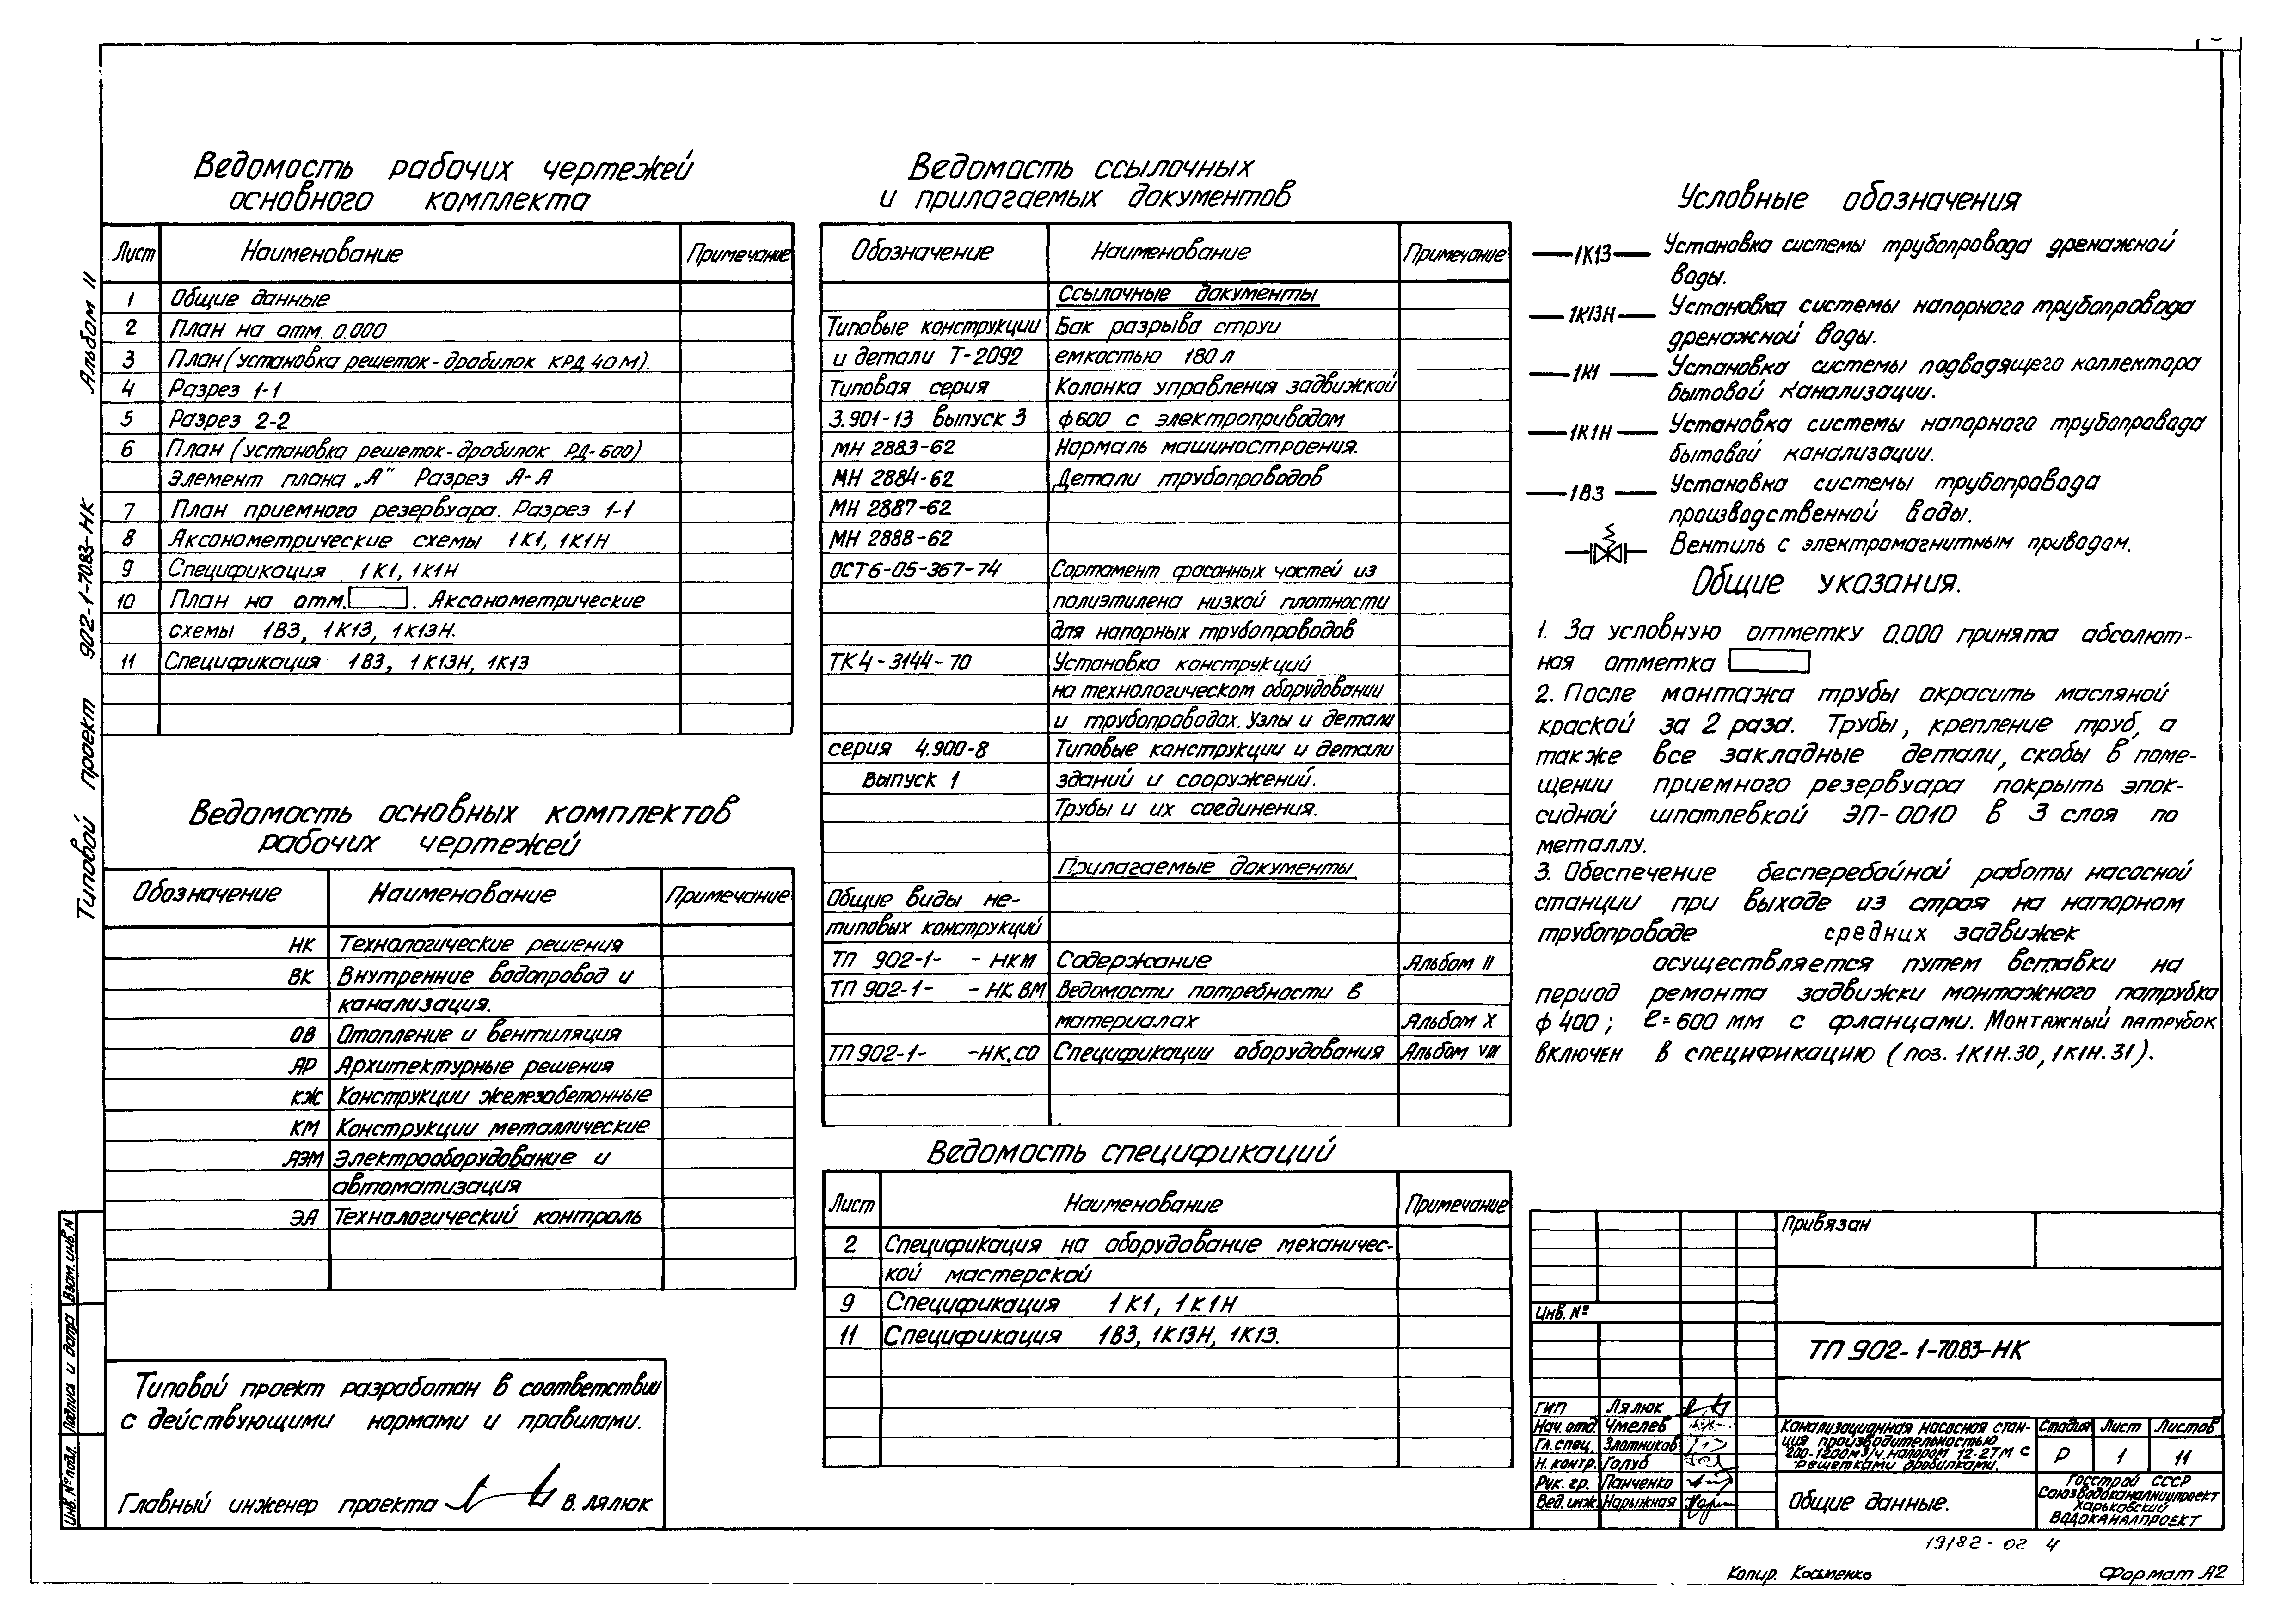 Альбом II
902-1-70.83-НК
Типовой проект
Ведомость рабочих чертежей
основного комплекта
Лист Наименование Примечание
1 Общие данные
2 План на отм. 0.000
3 План (установка решеток-дробилок КРД 40М).
4 Разрез 1-1
5 Разрез 2-2
6 План (установка решеток-дробилок РД-600)
Элемент плана „А" Разрез А-А
7 План приемного резервуара. Разрез 1-1
8 Аксонометрические схемы 1К1, 1К1Н
9 Спецификация 1К1, 1К1Н
10 План на отм. . Аксонометрические
схемы 1В3, 1К13, 1К13Н.
11 Спецификация 1В3, 1К13Н, 1К13
Ведомость основных комплектов
рабочих чертежей
Обозначение Наименование Примечание
НК Технологические решения
ВК Внутренние водопровод и
канализация.
ОВ Отопление и вентиляция
АР Архитектурные решения
КЖ Конструкции железобетонные
КМ Конструкции металлические
АЭМ Электрооборудование и
автоматизация
ЭА Технологический контроль
Типовой проект разработан в соответствии
с действующими нормами и правилами.
Главный инженер проекта В. Лялюк
Взам. инв. N
Подпись и дата
Инв. № подл.
Ведомость ссылочных
и прилагаемых документов
Обозначение Наименование Примечание
Ссылочные документы
Типовые конструкции Бак разрыва струи
и детали Т-2092 емкостью 180 л
Типовая серия Колонка управления задвижкой
3.901-13 выпуск 3 ф600 с электроприводом
МН 2883-62 Нормаль машиностроения.
МН 2884-62 Детали трубопроводов
МН 2887-62
МН 2888-62
ОСТ6-05-367-74 Сортамент фасонных частей из
полиэтилена низкой плотности
для напорных трубопроводов
ТК4-3144-70 Установка конструкций
на технологическом оборудовании
и трубопроводах. Узлы и детали
серия 4.900-8 Типовые конструкции и детали
выпуск 1 зданий и сооружений.
Трубы и их соединения.
Прилагаемые документы
Общие виды не-
типовых конструкций
ТП 902-1- - НКМ Содержание Альбом II
ТП 902-1- - НК.ВМ Ведомости потребности в
материалах Альбом X
ТП 902-1- -НК.СО Спецификации оборудования Альбом VIII
Ведомость спецификаций
Лист Наименование Примечание
2 Спецификация на оборудование механичес-
кой мастерской
9 Спецификация 1К1, 1К1Н
11 Спецификация 1В3, 1К13Н, 1К13.
Условные обозначения
1К13 Установка системы трубопровода дренажной
воды.
1К13Н Установка системы напорного трубопровода
дренажной воды.
1К1 Установка системы подводящего коллектора
бытовой канализации.
1К1Н Установка системы напорного трубопровода
бытовой канализации.
1В3 Установка системы трубопровода
производственной воды.
Вентиль с электромагнитным приводом.
Общие указания.
1. За условную отметку 0.000 принята абсолют-
ная отметка
2. После монтажа трубы окрасить масляной
краской за 2 раза. Трубы, крепление труб, а
также все закладные детали, скобы в поме-
щении приемного резервуара покрыть эпок-
сидной шпатлевкой ЭП-0010 в 3 слоя по
металлу.
3. Обеспечение бесперебойной работы насосной
станции при выходе из строя на напорном
трубопроводе средних задвижек
осуществляется путем вставки на
период ремонта задвижки монтажного патрубка
ф 400; ℓ=600 мм с фланцами. Монтажный патрубок
включен в спецификацию (поз. 1К1Н.30, 1К1Н.31).
Привязан
Инв. №
ТП 902-1-70.83-НК
ГИП Лялюк
Нач. отд. Чмелев
Гл. спец. Злотников
Н. контр. Голуб
Рук. гр. Панченко
Вед. инж. Нарыжная
Канализационная насосная стан-
ция производительностью
200-1200м3/ч. напором 12-27м с
решетками дробилками.
Стадия Лист Листов
Р 1 11
Общие данные.
Госстрой СССР
Союзводоканалниипроект
Харьковский
Водоканалпроект
19182-02 4
Копир. Формат А2